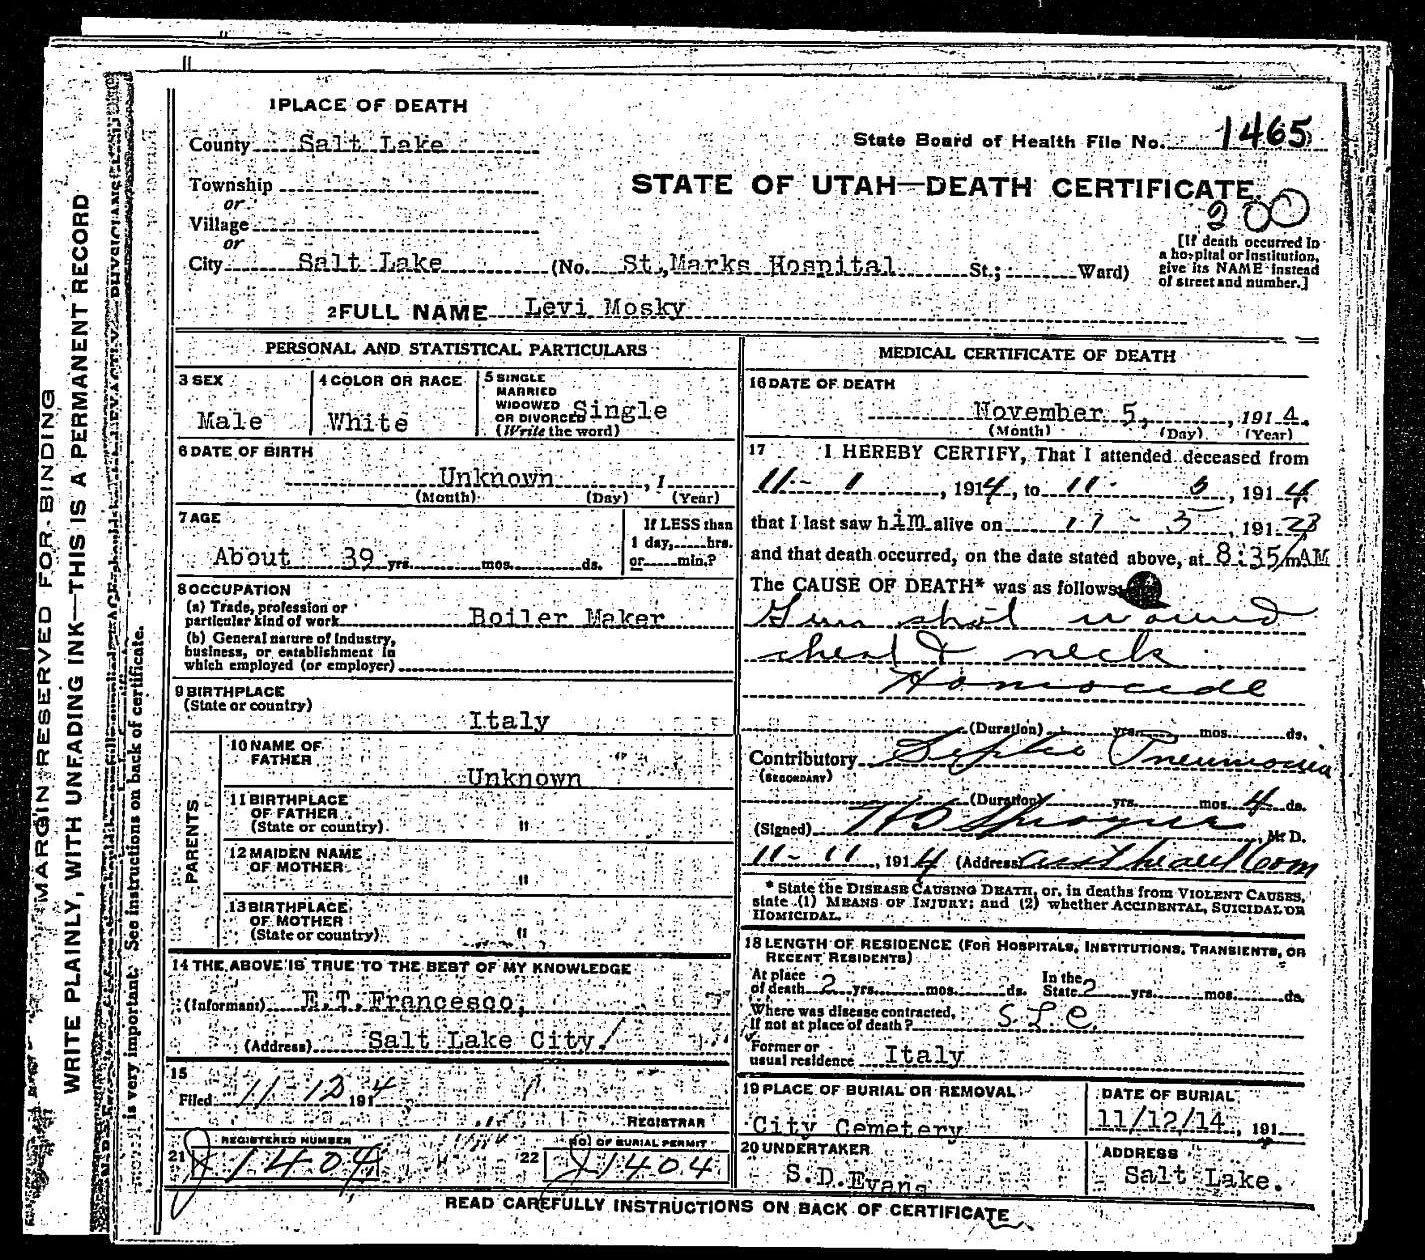 1 PLACE OF DEATH
County Salt Lake
State Board of Health File No. 1465
Township
or
Village
or
City Salt Lake (No. St. Marks Hospital St.; Ward)
STATE OF UTAH—DEATH CERTIFICATE
200
[If death occurred in a hospital or institution, give its NAME instead of street and number.]
2 FULL NAME Levi Mosky
PERSONAL AND STATISTICAL PARTICULARS
3 SEX
Male
4 COLOR OR RACE
White
5 SINGLE MARRIED WIDOWED OR DIVORCED Single
(Write the word)
6 DATE OF BIRTH
Unknown , 1
(Month) (Day) (Year)
7 AGE
About 39 yrs. mos. ds.
If LESS than 1 day, hrs. or min.?
8 OCCUPATION
(a) Trade, profession or particular kind of work Boiler Maker
(b) General nature of industry, business, or establishment in which employed (or employer)
9 BIRTHPLACE
(State or country)
Italy
PARENTS
10 NAME OF FATHER
Unknown
11 BIRTHPLACE OF FATHER
(State or country) "
12 MAIDEN NAME OF MOTHER
"
13 BIRTHPLACE OF MOTHER
(State or country) "
14 THE ABOVE IS TRUE TO THE BEST OF MY KNOWLEDGE
(Informant) E.T.Francesco,
(Address) Salt Lake City.
15
Filed 11-12 1914
REGISTRAR
21 REGISTERED NUMBER
J 1404
22 NO. OF BURIAL PERMIT
J 1404
MEDICAL CERTIFICATE OF DEATH
16 DATE OF DEATH
November 5, , 1914.
(Month) (Day) (Year)
17 I HEREBY CERTIFY, That I attended deceased from
11- 1 , 1914, to 11- 5 , 1914
that I last saw him alive on 11-5 191
and that death occurred, on the date stated above, at 8:35/m AM
The CAUSE OF DEATH* was as follows:
Gun shot wound
chest & neck
Homocide
(Duration) yrs. mos. ds.
Contributory Septic Pneumonia
(SECONDARY)
(Duration) yrs. mos. 4 ds.
(Signed) , M.D.
11-11, 1914 (Address)
* State the DISEASE CAUSING DEATH, or, in deaths from VIOLENT CAUSES, state (1) MEANS OF INJURY; and (2) whether ACCIDENTAL, SUICIDAL OR HOMICIDAL.
18 LENGTH OF RESIDENCE (FOR HOSPITALS, INSTITUTIONS, TRANSIENTS, OR RECENT RESIDENTS)
At place of death 2 yrs. mos. ds. In the State 2 yrs. mos. ds.
Where was disease contracted, If not at place of death? S.L.C.
Former or usual residence Italy
19 PLACE OF BURIAL OR REMOVAL
City Cemetery
DATE OF BURIAL
11/12/14 , 191
20 UNDERTAKER
S.D.Evans
ADDRESS
Salt Lake.
READ CAREFULLY INSTRUCTIONS ON BACK OF CERTIFICATE
MARGIN RESERVED FOR BINDING
WRITE PLAINLY, WITH UNFADING INK—THIS IS A PERMANENT RECORD
is very important. See instructions on back of certificate.